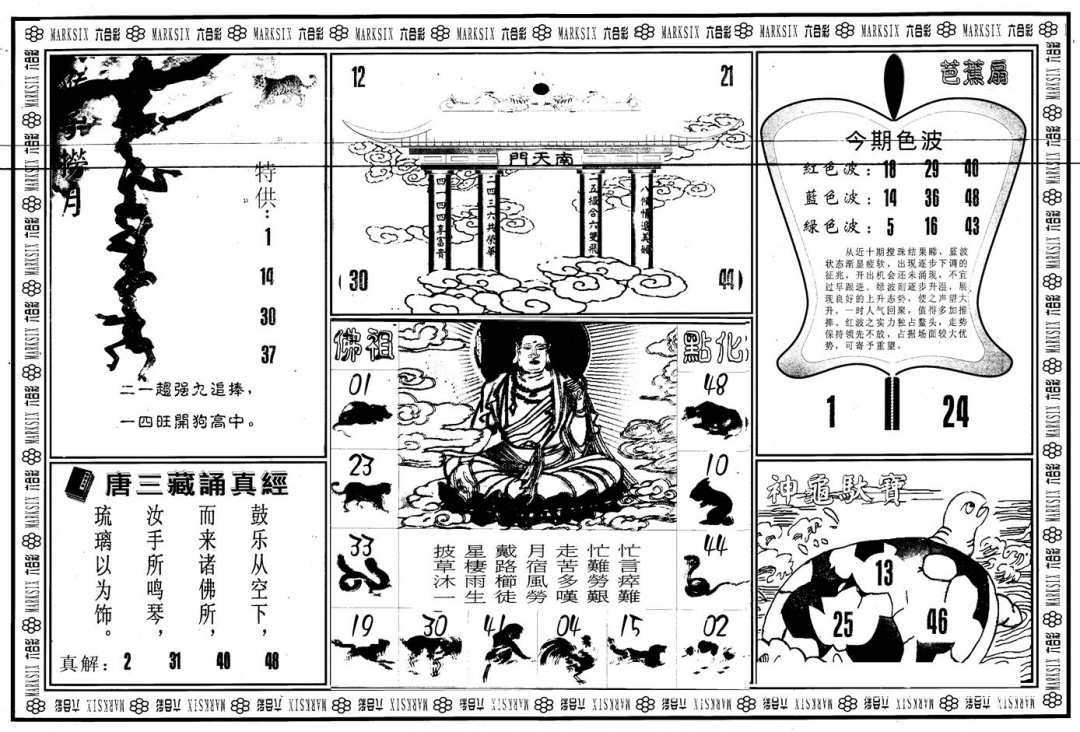 MARKSIX 六合彩 MARKSIX 六合彩 MARKSIX 六合彩 MARKSIX 六合彩 MARKSIX 六合彩 MARKSIX 六合彩 MARKSIX 六合彩 MARKSIX 六合彩 MARKSIX 六合彩 MARKSIX 六合彩
撈月
特供：
1
14
30
37
二一趨强九追捧，
一四旺開狗高中。
唐三藏誦真經
鼓乐从空下，
而来诸佛所，
汝手所鸣琴，
琉璃以为饰。
真解： 2 31 40 48
12
21
南天門
八條情道美婦
二五擂合六雙飛
二四三六共榮華
四一四四享富貴
30
44
佛祖
點化
01
48
23
10
33
44
19
30
41
04
15
02
忙言瘁難
忙難勞艱
走苦多嘆
月宿風勞
戴路櫛徒
星棲雨生
披草沐一
芭蕉扇
今期色波
紅色波： 18 29 40
藍色波： 14 36 48
綠色波： 5 16 43
从近十期搅珠结果睇，蓝波
状态渐显疲软，出现逐步下调的
征兆，开出机会还未涌现，不宜
过早跟进。绿波则逐步升温，展
现良好的上升态势，使之声望大
升，一时人气回聚，值得多加推
捧。红波之实力独占鳌头，走势
保持领先不放，占据场面较大优
势，可寄予重望。
1
24
神龜馱寶
13
25
46